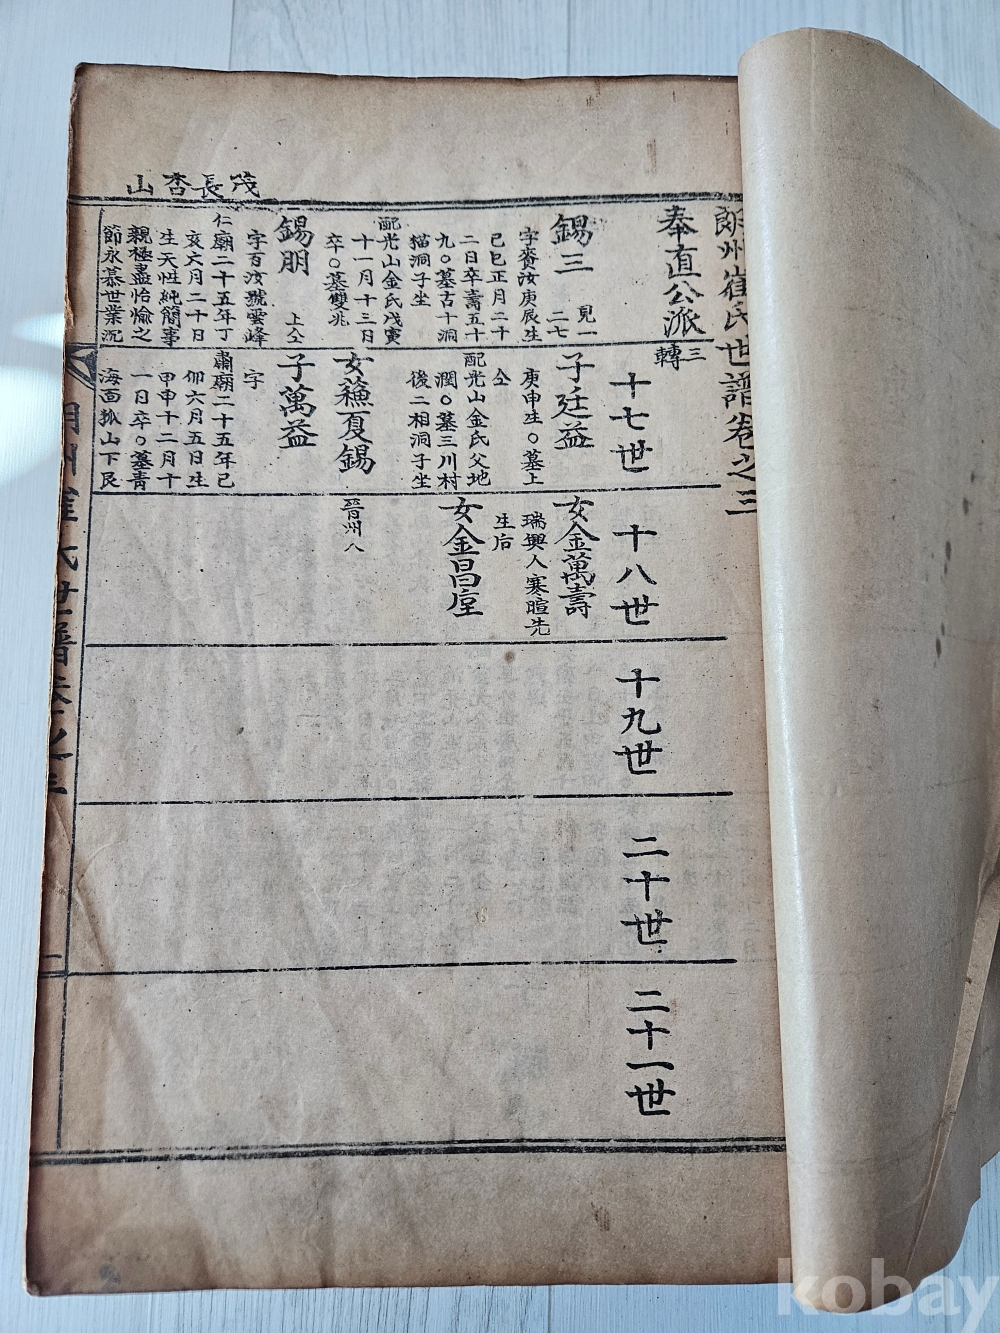 茂長杏山
朗州崔氏世譜卷之三
奉直公派
三
轉
錫三
見一
二七
字賚汝庚辰生
己巳正月二十
二日卒壽五十
九〇墓古十洞
猫洞子坐
配光山金氏戊寅
十一月十三日
卒〇墓雙兆
錫朋
上仝
字百汝號雲峰
仁廟二十五年丁
亥六月二十日
生天性純簡事
親極盡怡愉之
節永慕世業沉
十七世
子廷益
庚申生〇墓上
仝
配光山金氏父地
潤〇墓三川村
後二相洞子坐
女蘓夏錫
子萬益
字
肅廟二十五年己
卯六月五日生
甲申十二月十
一日卒〇墓靑
海面狐山下艮
十八世
女金萬壽
瑞興人寒暄先
生后
女金昌垕
晉州人
十九世
二十世
二十一世
朗州崔氏世譜卷之三
一
kobay